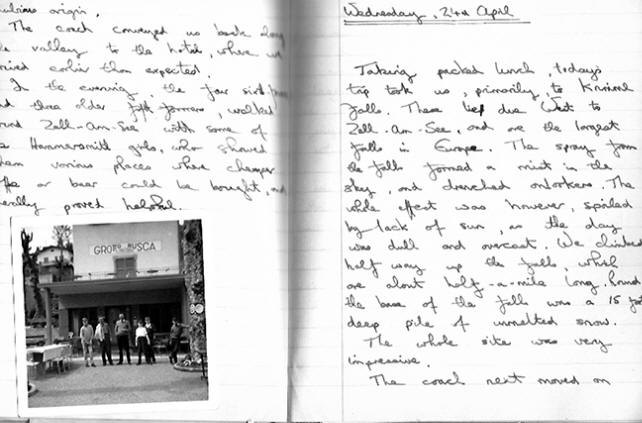 origin.
The coach conveyed us back along
valley to the hotel, where we
earlier than expected.
In the evening, the four sixth
three older fifth formers, walked
Zell-Am-See with some of
Hammersmith girls, who showed
various places where cheaper
or beer could be bought, and
proved helpful.
GROTTO RUSCA
Wednesday, 24th April
Taking packed lunch, today's
trip took us, primarily, to Krimml
Falls. These lie due West to
Zell-Am-See, and are the largest
falls in Europe. The spray from
the falls formed a mist in the
sky, and drenched onlookers. The
whole effect was however, spoiled
by lack of sun, as the day
was dull and overcast. We climbed
half way up the falls, which
are about half-a-mile long. Round
the base of the fall was a 15 foot
deep pile of unmelted snow.
The whole site was very
impressive.
The coach next moved on